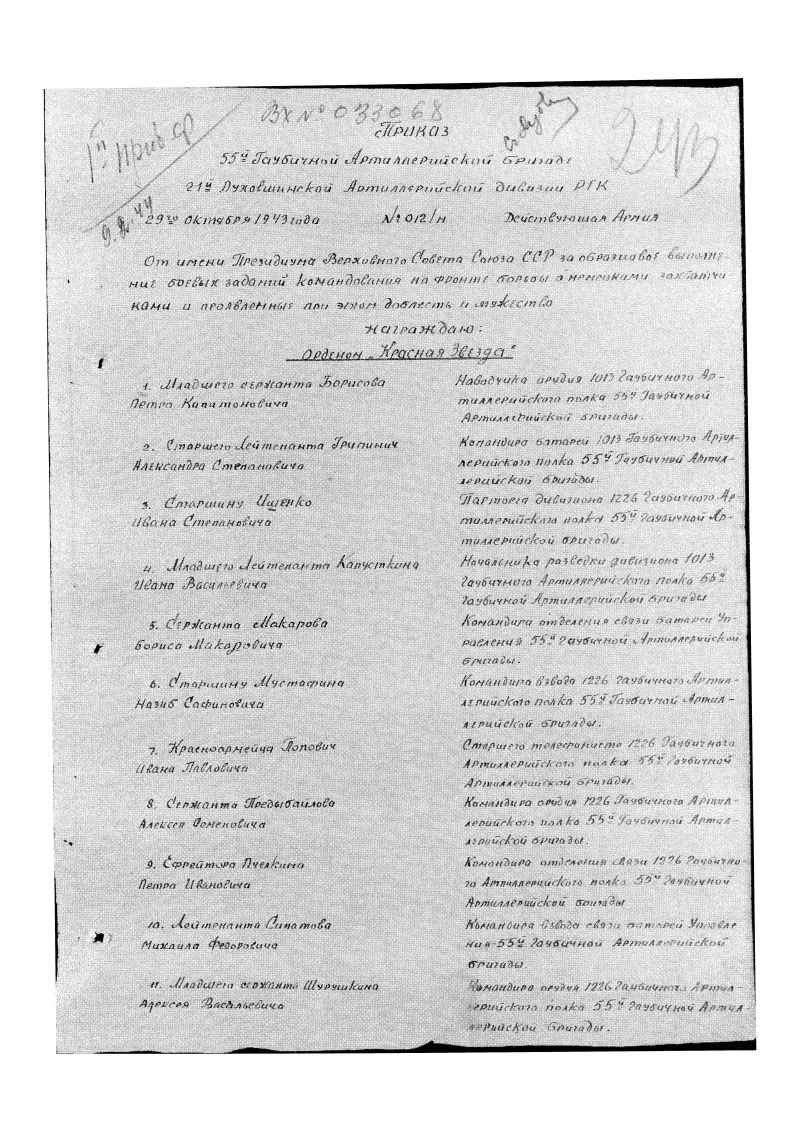 Вх № 033068
Приказ
55й Гаубичной Артиллерийской бригаде
21й Духовщинской Артиллерийской дивизии РГК
29го октября 1943 года № 012/н Действующая Армия
9.2.44
От имени Президиума Верховного Совета Союза ССР за образцовое выполне-
ние боевых заданий командования на фронте борьбы с немецкими захватчи-
ками и проявленные при этом доблесть и мужество
награждаю:
Орденом „Красная Звезда"
1. Младшего сержанта Борисова
Петра Капитоновича
Наводчика орудия 1013 Гаубичного Ар-
тиллерийского полка 55й Гаубичной
Артиллерийской бригады.
2. Старшего Лейтенанта Грипинич
Александра Степановича
Командира батареи 1013 Гаубичного Артил-
лерийского полка 55й Гаубичной Артил-
лерийской бригады.
3. Старшину Ищенко
Ивана Степановича
Парторга дивизиона 1226 Гаубичного Ар-
тиллерийского полка 55й Гаубичной Ар-
тиллерийской бригады.
4. Младшего Лейтенанта Капусткина
Ивана Васильевича
Начальника разведки дивизиона 1013
Гаубичного Артиллерийского полка 55й
Гаубичной Артиллерийской бригады
5. Сержанта Макарова
Бориса Макаровича
Командира отделения связи батареи Уп-
равления 55й Гаубичной Артиллерийской
бригады.
6. Старшину Мустафина
Назиб Сафиновича
Командира взвода 1226 Гаубичного Артил-
лерийского полка 55й Гаубичной Артил-
лерийской бригады.
7. Красноармейца Попович
Ивана Павловича
Старшего телефониста 1226 Гаубичного
Артиллерийского полка 55й Гаубичной
Артиллерийской бригады.
8. Сержанта Предыбайлова
Алексея Семеновича
Командира орудия 1226 Гаубичного Артил-
лерийского полка 55й Гаубичной Артил-
лерийской бригады.
9. Ефрейтора Пчелкина
Петра Ивановича
Командира отделения связи 1226 Гаубично-
го Артиллерийского полка 55й Гаубичной
Артиллерийской бригады
10. Лейтенанта Сипатова
Михаила Федоровича
Командира взвода связи батареи Управле
ния 55й Гаубичной Артиллерийской
бригады.
11. Младшего сержанта Шурушкина
Алексея Васильевича
Командира орудия 1226 Гаубичного Артил-
лерийского полка 55й Гаубичной Артил-
лерийской бригады.